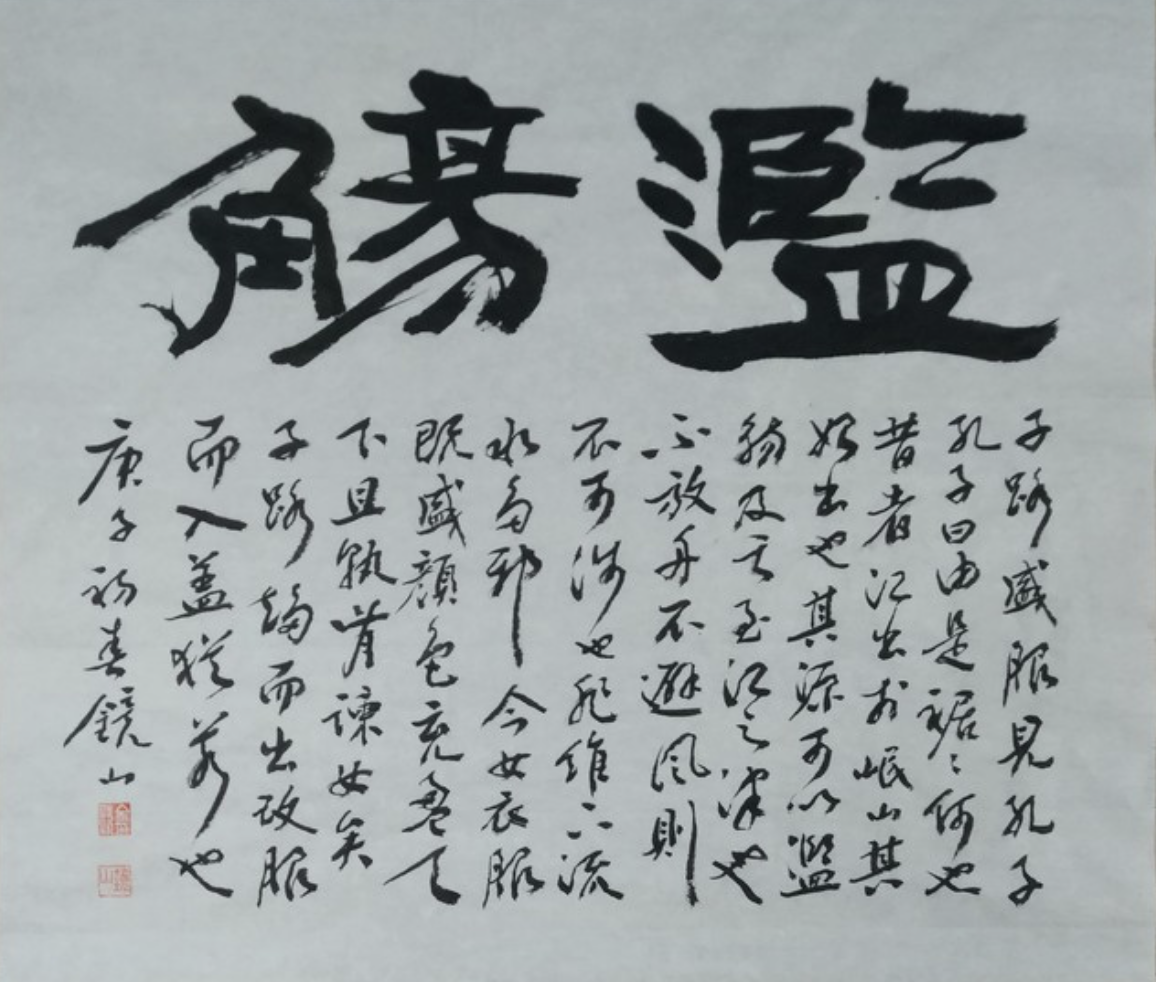 濫觴
子路盛服見孔子
孔子曰由是裾〻何也
昔者江出於岷山其
始出也其源可以濫
觴及其至江之津也
不放舟不避風則
不可涉也非維下流
水多邪今女衣服
既盛顏色充盈天
下且孰肯諫女矣
子路趨而出改服
而入蓋猶若也
庚子初春鏡山